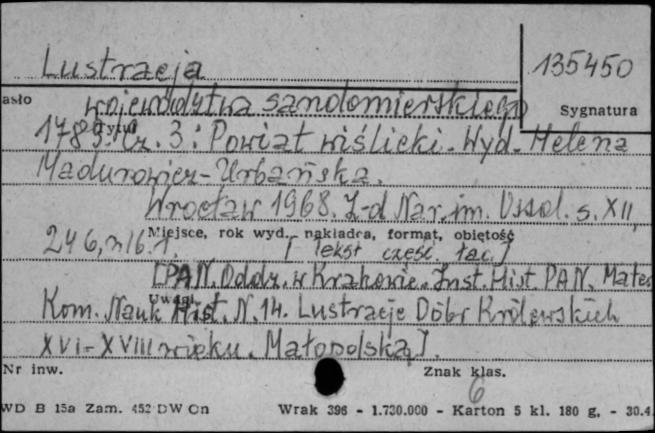 Lustracja
135450
asło
województwa sandomierskiego
Sygnatura
1789. Cz. 3: Powiat wiślicki. Wyd. Helena
Madurowicz-Urbańska.
Wrocław 1968. Z-d Nar. im. Ossol. s. XII,
Miejsce, rok wyd., nakładca, format, objętość
246, nlb. 1.
[Tekst częśc. łac.]
[PAN. Oddz. w Krakowie. Inst. Hist. PAN. Mater.
Uwagi
Kom. Nauk Hist. N. 14. Lustracje Dóbr Królewskich
XVI-XVIII wieku. Małopolska].
Nr inw.
Znak klas.
6
WD B 15a Zam. 452 DW Cn
Wrak 396 - 1.730.000 - Karton 5 kl. 180 g. - 30.4